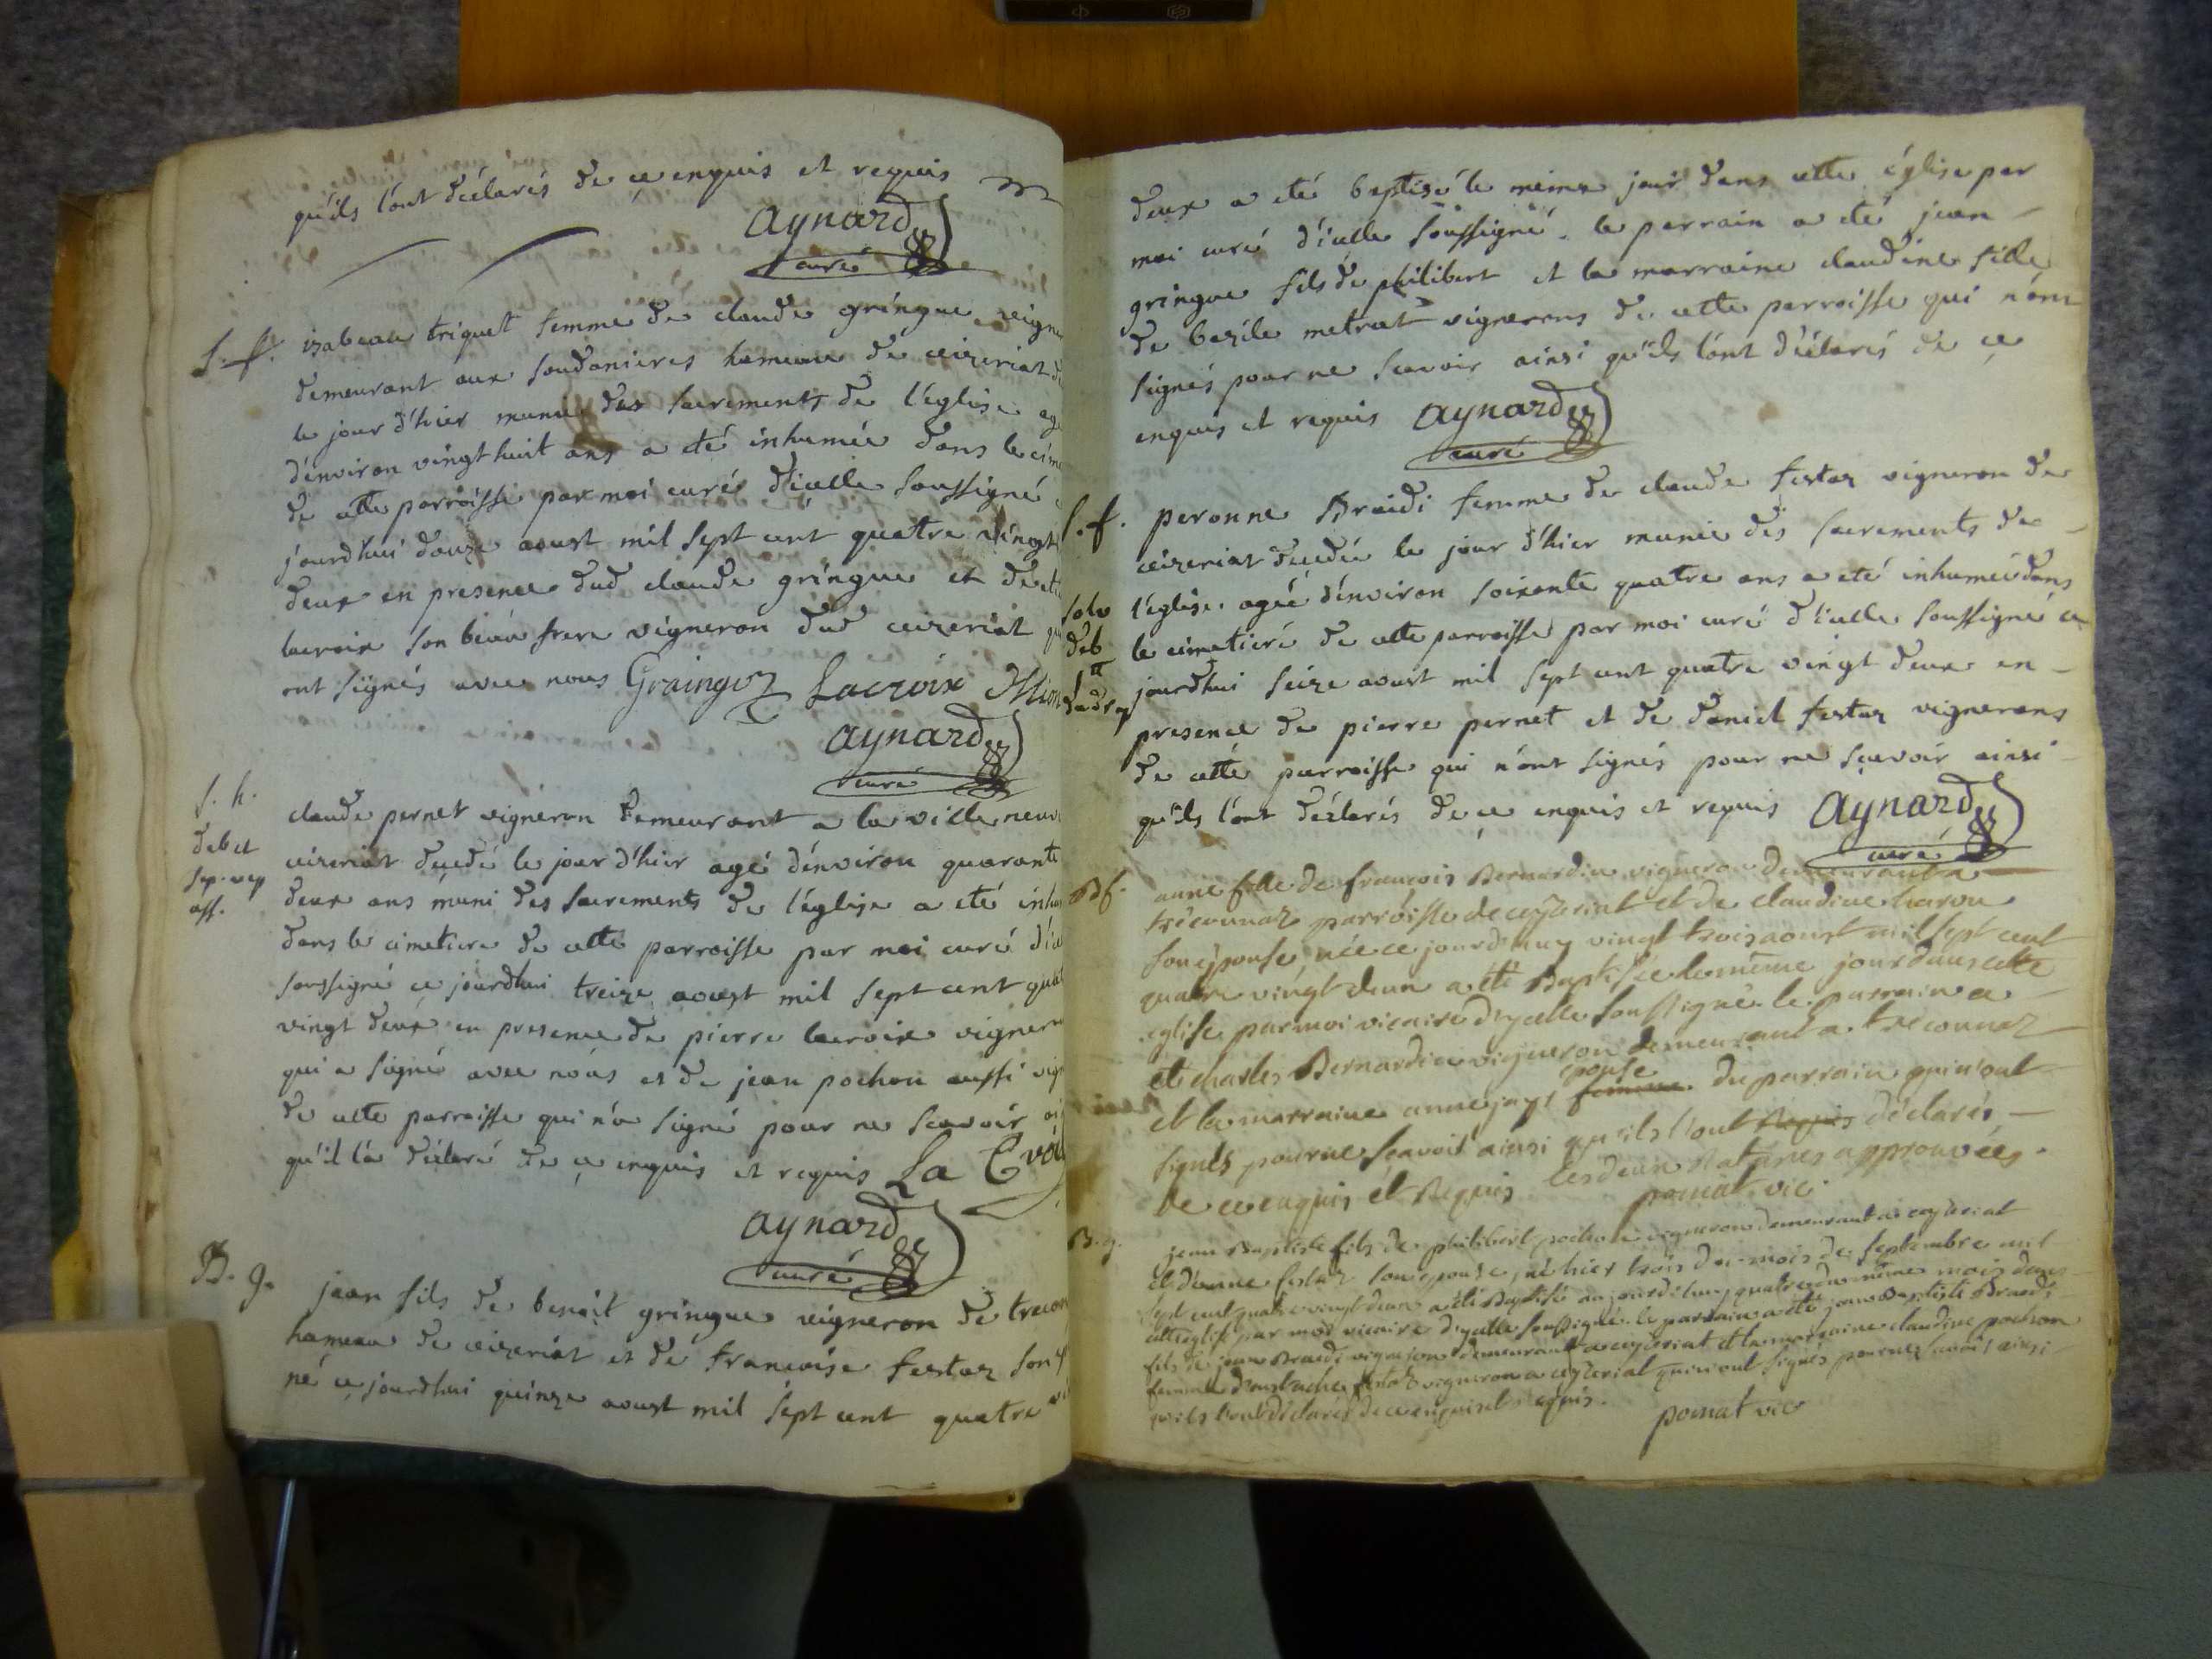 qu'ils l'ont déclarés de ce enquis et requis
aynard
curé
S. f. izabeau triquet femme de claude gringue vigne
demeurant aux soudanieres hameau de ceizeriat
le jour d'hier munie des sacrements de l'église agé
d'environ vingt huit ans a été inhumée dans le cime
de cette parroisse par moi curé d'icelle soussigné
jourdhui douze aoust mil sept cent quatre vingt
deux en presence dud claude gringue et de
lacroix son beau frere vigneron dud ceizeriat
ont signés avec nous Graingoz Lacroix
aynard
curé
S. h.
debet
sep. vep
aff.
claude pernet vigneron demeurant a la ville neuve
ceizeriat decedé le jour d'hier agé d'environ quarante
deux ans muni des sacrements de l'église a été inhu
dans le cimetiere de cette parroisse par moi curé d'ice
soussigné ce jourdhui treize aoust mil sept cent quat
vingt deux en presence de pierre lacroix vigneron
qui a signé avec nous et de jean pochon aussi vig
de cette parroisse qui n'a signé pour ne scavoir
qu'il l'a déclaré de ce enquis et requis La Croi
aynard
curé
B. g. jean fils de benoit gringue vigneron de trecon
hameau de ceizeriat et de francoise festaz son
né ce jourdhui quinze aoust mil sept cent quatre
deux a été baptisé le meme jour dans cette église par
moi curé d'icelle soussigné. le parrain a été jean
gringue fils de philibert et la marraine claudine fille
de bazile metrat vignerons de cette parroisse qui n'ont
signés pour ne scavoir ainsi qu'ils l'ont déclarés de ce
enquis et requis aynard
curé
S. f. peronne Braidi femme de claude festaz vigneron de
ceizeriat decedée le jour d'hier munie des sacrements de
l'église agée d'environ soixante quatre ans a été inhumée dans
le cimetiere de cette parroisse par moi curé d'icelle soussigné ce
jourdhui seize aoust mil sept cent quatre vingt deux en
presence de pierre pernet et de daniel festaz vignerons
de cette parroisse qui n'ont signés pour ne scavoir ainsi
qu'ils l'ont déclarés de ce enquis et requis aynard
curé
solv
deb
Bf. anne fille de francois Bernardin vigneron demeurant a
tréconnaz parroisse de ceyzeriat et de claudine
son épouse, née ce jourd'huy vingt trois aoust mil sept cent
quatre vingt deux a été Baptisée le même jour dans cette
eglise par moi vicaire d'ycelle soussigné. le parrain a
été charles Bernardin vigneron demeurant a tréconnaz
et la marraine anne jays femme epouse du parrain qui n'ont
signés pour ne scavoir ainsi qu'ils l'ont Requis déclarés
de ce enquis et Requis. les deux Ratures approuvées.
pomat vic.
B. g. jean Baptiste fils de philibert pochon vigneron demeurant a ceyzeriat
et d'anne festaz son epouse, né hier trois du mois de septembre mil
sept cent quatre vingt deux a été Baptisé aujourd'huy quatre du même mois dans
cette église par moi vicaire d'ycelle soussigné. le parrain a été jean Baptiste Braidi
fils de jean Braidi vigneron demeurant a ceyzeriat et la marraine claudine pochon
femme d'eustache festaz vigneron a ceyzeriat qui n'ont signés pour ne scavoir ainsi
qu'ils l'ont déclarés de ce enquis et requis.
pomat vic